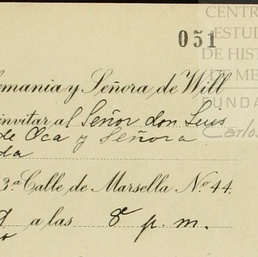 CENTR
ESTUD
DE HIST
DE ME
UNDA
Carlos
051
emania y Señora de Will
invitar al Señor don Luis
de Oca y Señora
da
3ª Calle de Marsella Nº 44.
a las 8 p. m.